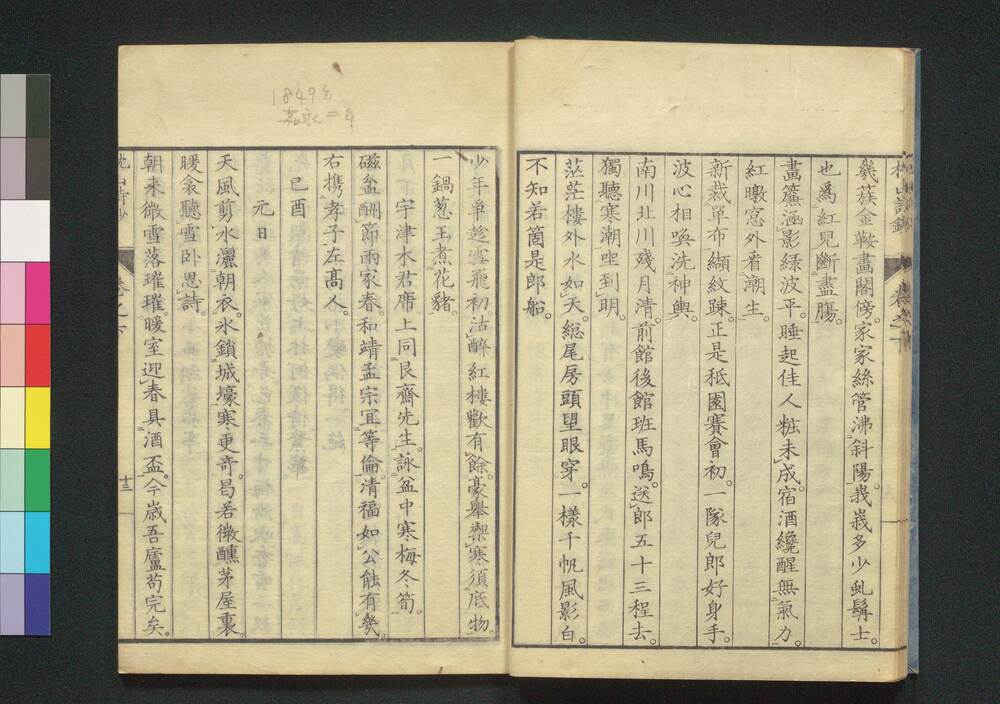 幾簇金鞍畫閣傍。家家絲管沸斜陽。峩峩多少虬髯士。
也爲紅兒斷盡膓。
畵簾涵影綠波平。睡起佳人粧未成。宿酒纔醒無氣力。
紅暾窓外看潮生。
新裁單布纈紋踈。正是秪園賽會初。一隊兒郎好身手。
波心相喚洗神輿。
南川北川殘月清。前館後館班馬鳴。送郎五十三程去。
獨聽寒潮坐到明。
茫茫樓外水如天。縂尾房頭望眼穿。一樣千帆風影白。
不知若箇是郎船。
1849年
嘉永二年
少年單趁雪飛初。沽醉紅樓歡有餘。豪擧禦寒須底物。
一鍋葱玉煮花豬。
宇津木君席上同艮齋先生。詠盆中寒梅冬筍。
磁盆酬節兩家春。和靖孟宗冝等倫。清福如公能有幾。
右携孝子左髙人。
己酉
元日
天風剪水灑朝衣。氷鎖城壕寒更奇。曷若微醺茅屋裏。
暖衾聽雪卧思詩。
朝來微雪落璀璀。暖室迎春具酒盃。今歲吾廬苟完矣。
十三